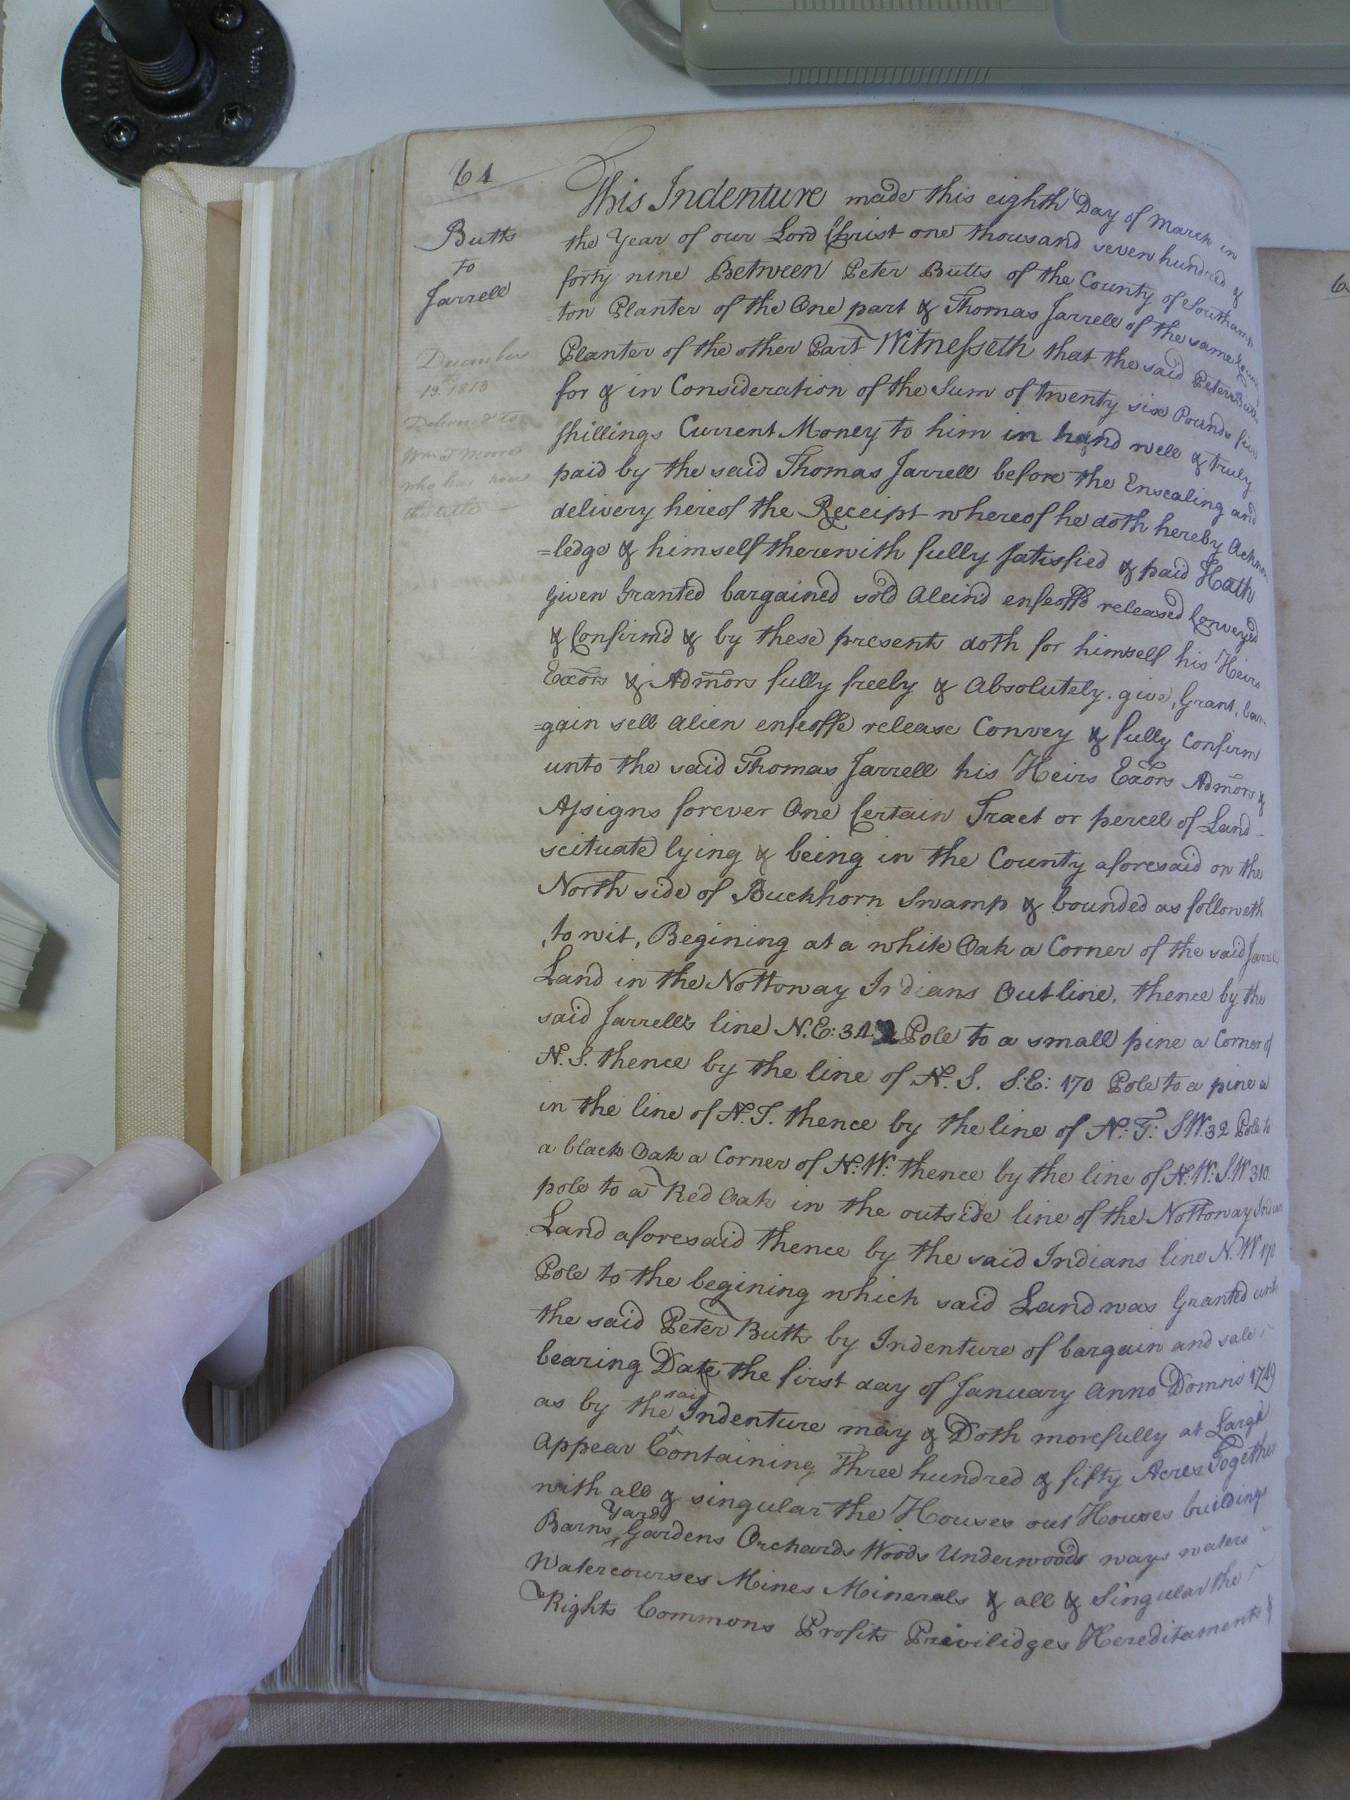 61
Butts
to
Jarrell
December
19. 1818
Delivered to
Wm J Moore
who has now
the title
This Indenture made this eighth Day of March in
the Year of our Lord Christ one thousand seven hundred &
forty nine Between Peter Butts of the County of Southamp
=ton Planter of the One part & Thomas Jarrell of the same County
Planter of the other Part Witnesseth that the said Peter Butts
for & in Consideration of the Sum of twenty six Pounds five
shillings Current Money to him in hand well & truly
paid by the said Thomas Jarrell before the Ensealing and
delivery hereof the Receipt whereof he doth hereby Acknow
=ledge & himself therewith fully satisfied & paid Hath
given Granted bargained sold Aleind enfeoffd released Conveyed
& Confirm'd & by these presents doth for himself his Heirs
Exors & Admors fully freely & Absolutely. give, Grant, bar-
=gain sell alien enfeoffe release Convey & fully Confirm
unto the said Thomas Jarrell his Heirs Exors Admors &
Assigns forever One Certain Tract or percel of Land
scituate lying & being in the County aforesaid on the
North side of Buckhorn Swamp & bounded as followeth
,to wit, Begining at a white Oak a Corner of the said Jarrells
Land in the Nottoway Indians Outline, thence by the
said Jarrell's line N.E: 342 Pole to a small pine a Corner of
N. S. thence by the line of N. S. S:E: 170 Pole to a pine a
in the line of N. T. thence by the line of N. T: SW. 32 Pole to
a black Oak a Corner of N: W: thence by the line of N. W: S.W 310
pole to a Red Oak in the outside line of the Nottoway Indian
Land aforesaid thence by the said Indians line N. W 170
Pole to the begining which said Land was Granted unto
the said Peter Butts by Indenture of bargain and sale
bearing Date the first day of January Anno Domini 1749
as by the said Indenture may & Doth morefully at Large
Appear Containing Three hundred & fifty Acres Together
with all & singular the Houses out Houses buildings
Barns Yards Gardens Orchards Woods Underwoods ways waters
Watercourses Mines Minerals & all & Singular the
Rights Commons Profits Privilidges Hereditaments &